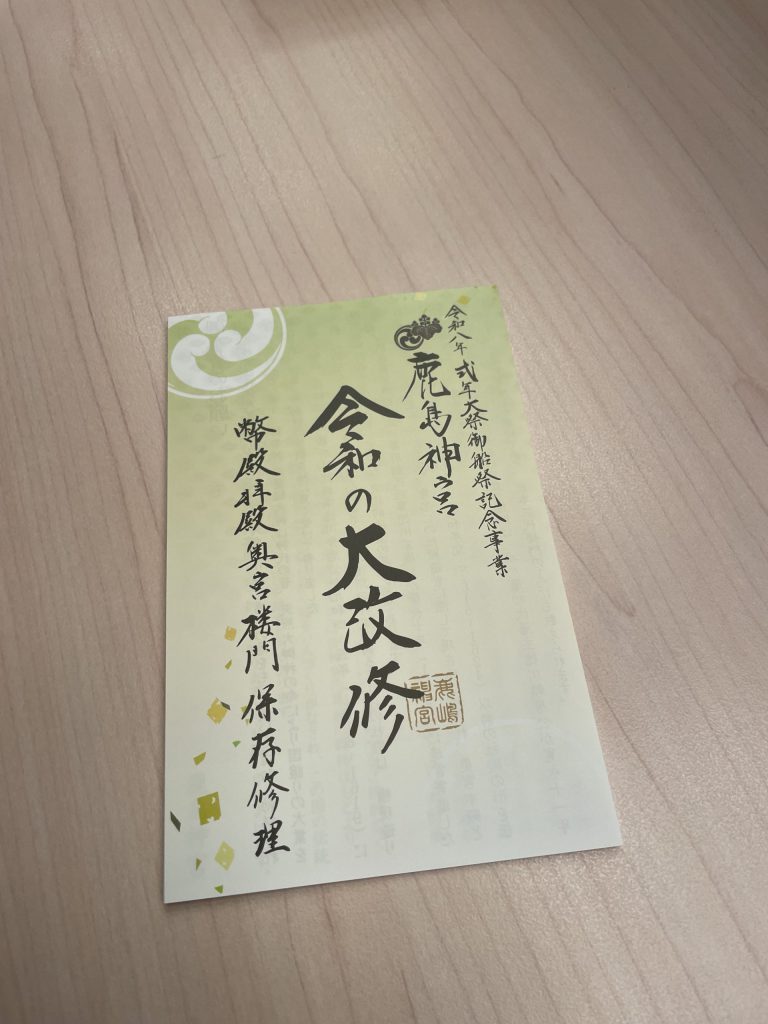 令和八年 式年大祭御船祭記念事業
鹿島神宮
令和の大改修
幣殿拝殿奥宮楼門保存修理
鹿嶋
神宮